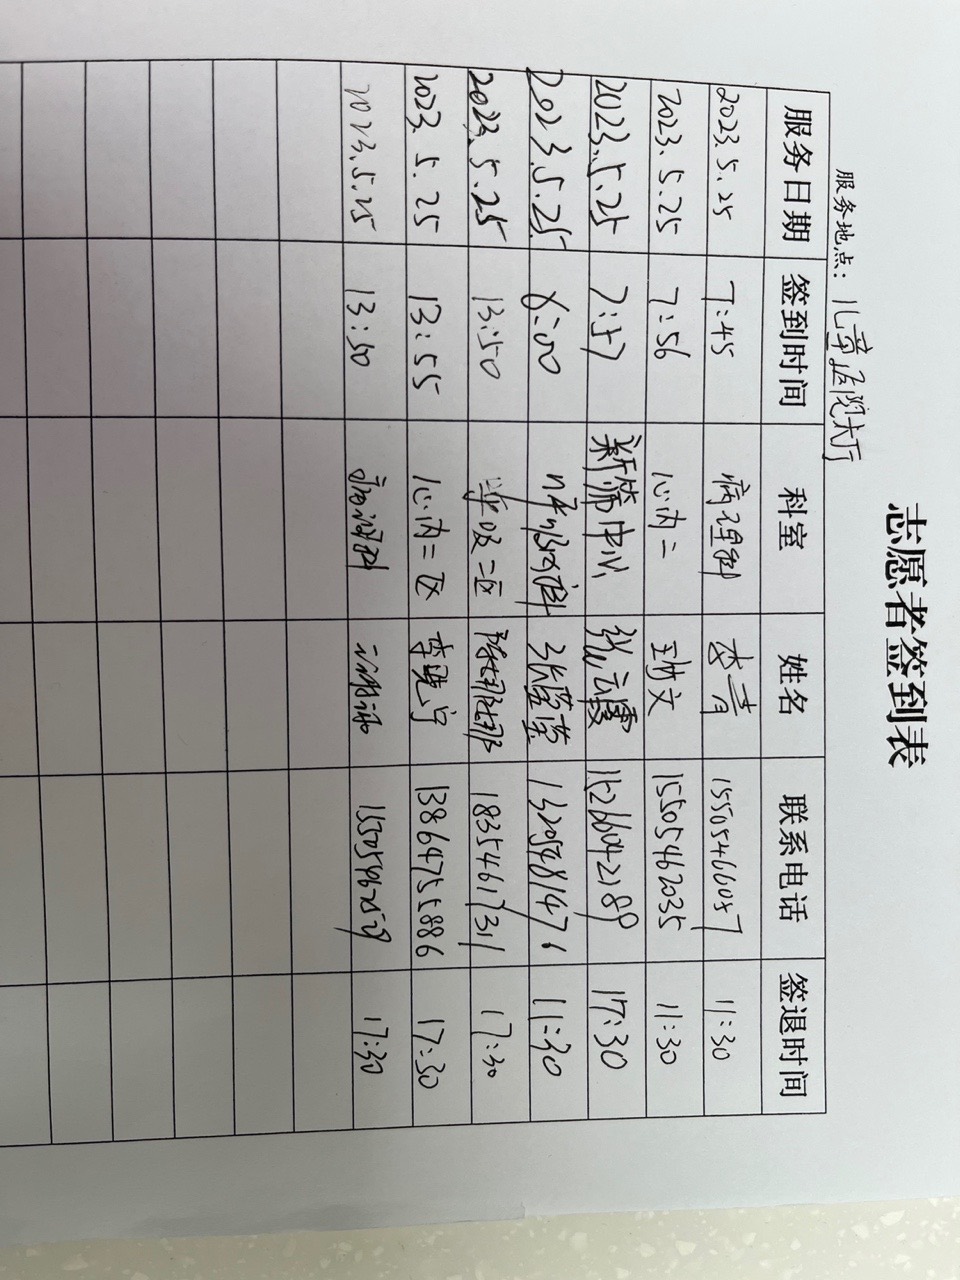 志愿者签到表
服务地点：儿童医院大厅
服务日期 签到时间 科室 姓名 联系电话 签退时间
2023.5.25 7:45 病理科 李青 15505466057 11:30
2023.5.25 7:56 心内二 文 15505462035 11:30
2023.5.25 7:57 新筛中心 张云霞 15266042189 17:30
2023.5.25 8:00 张莹莹 11:30
2023.5.25 13:50 呼吸二区 陈娜娜 18354617311 17:30
2023.5.25 13:55 心内二区 李晓宇 13864755886 17:30
2023.5.25 13:50 17:30